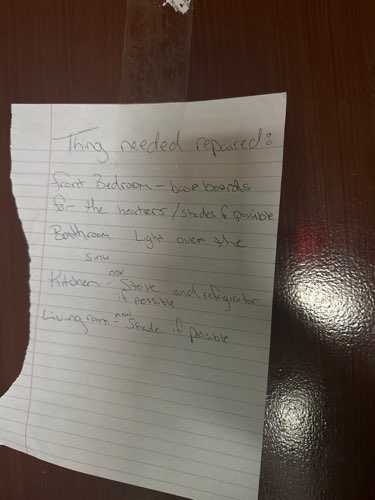 Thing needed repaired:
front Bedroom - baseboards
for the heaters/shades if possible
Bathroom Light over the
sink
Kitchen - new Stove and refrigirator
if possible
Livingroom - new Shade if possible